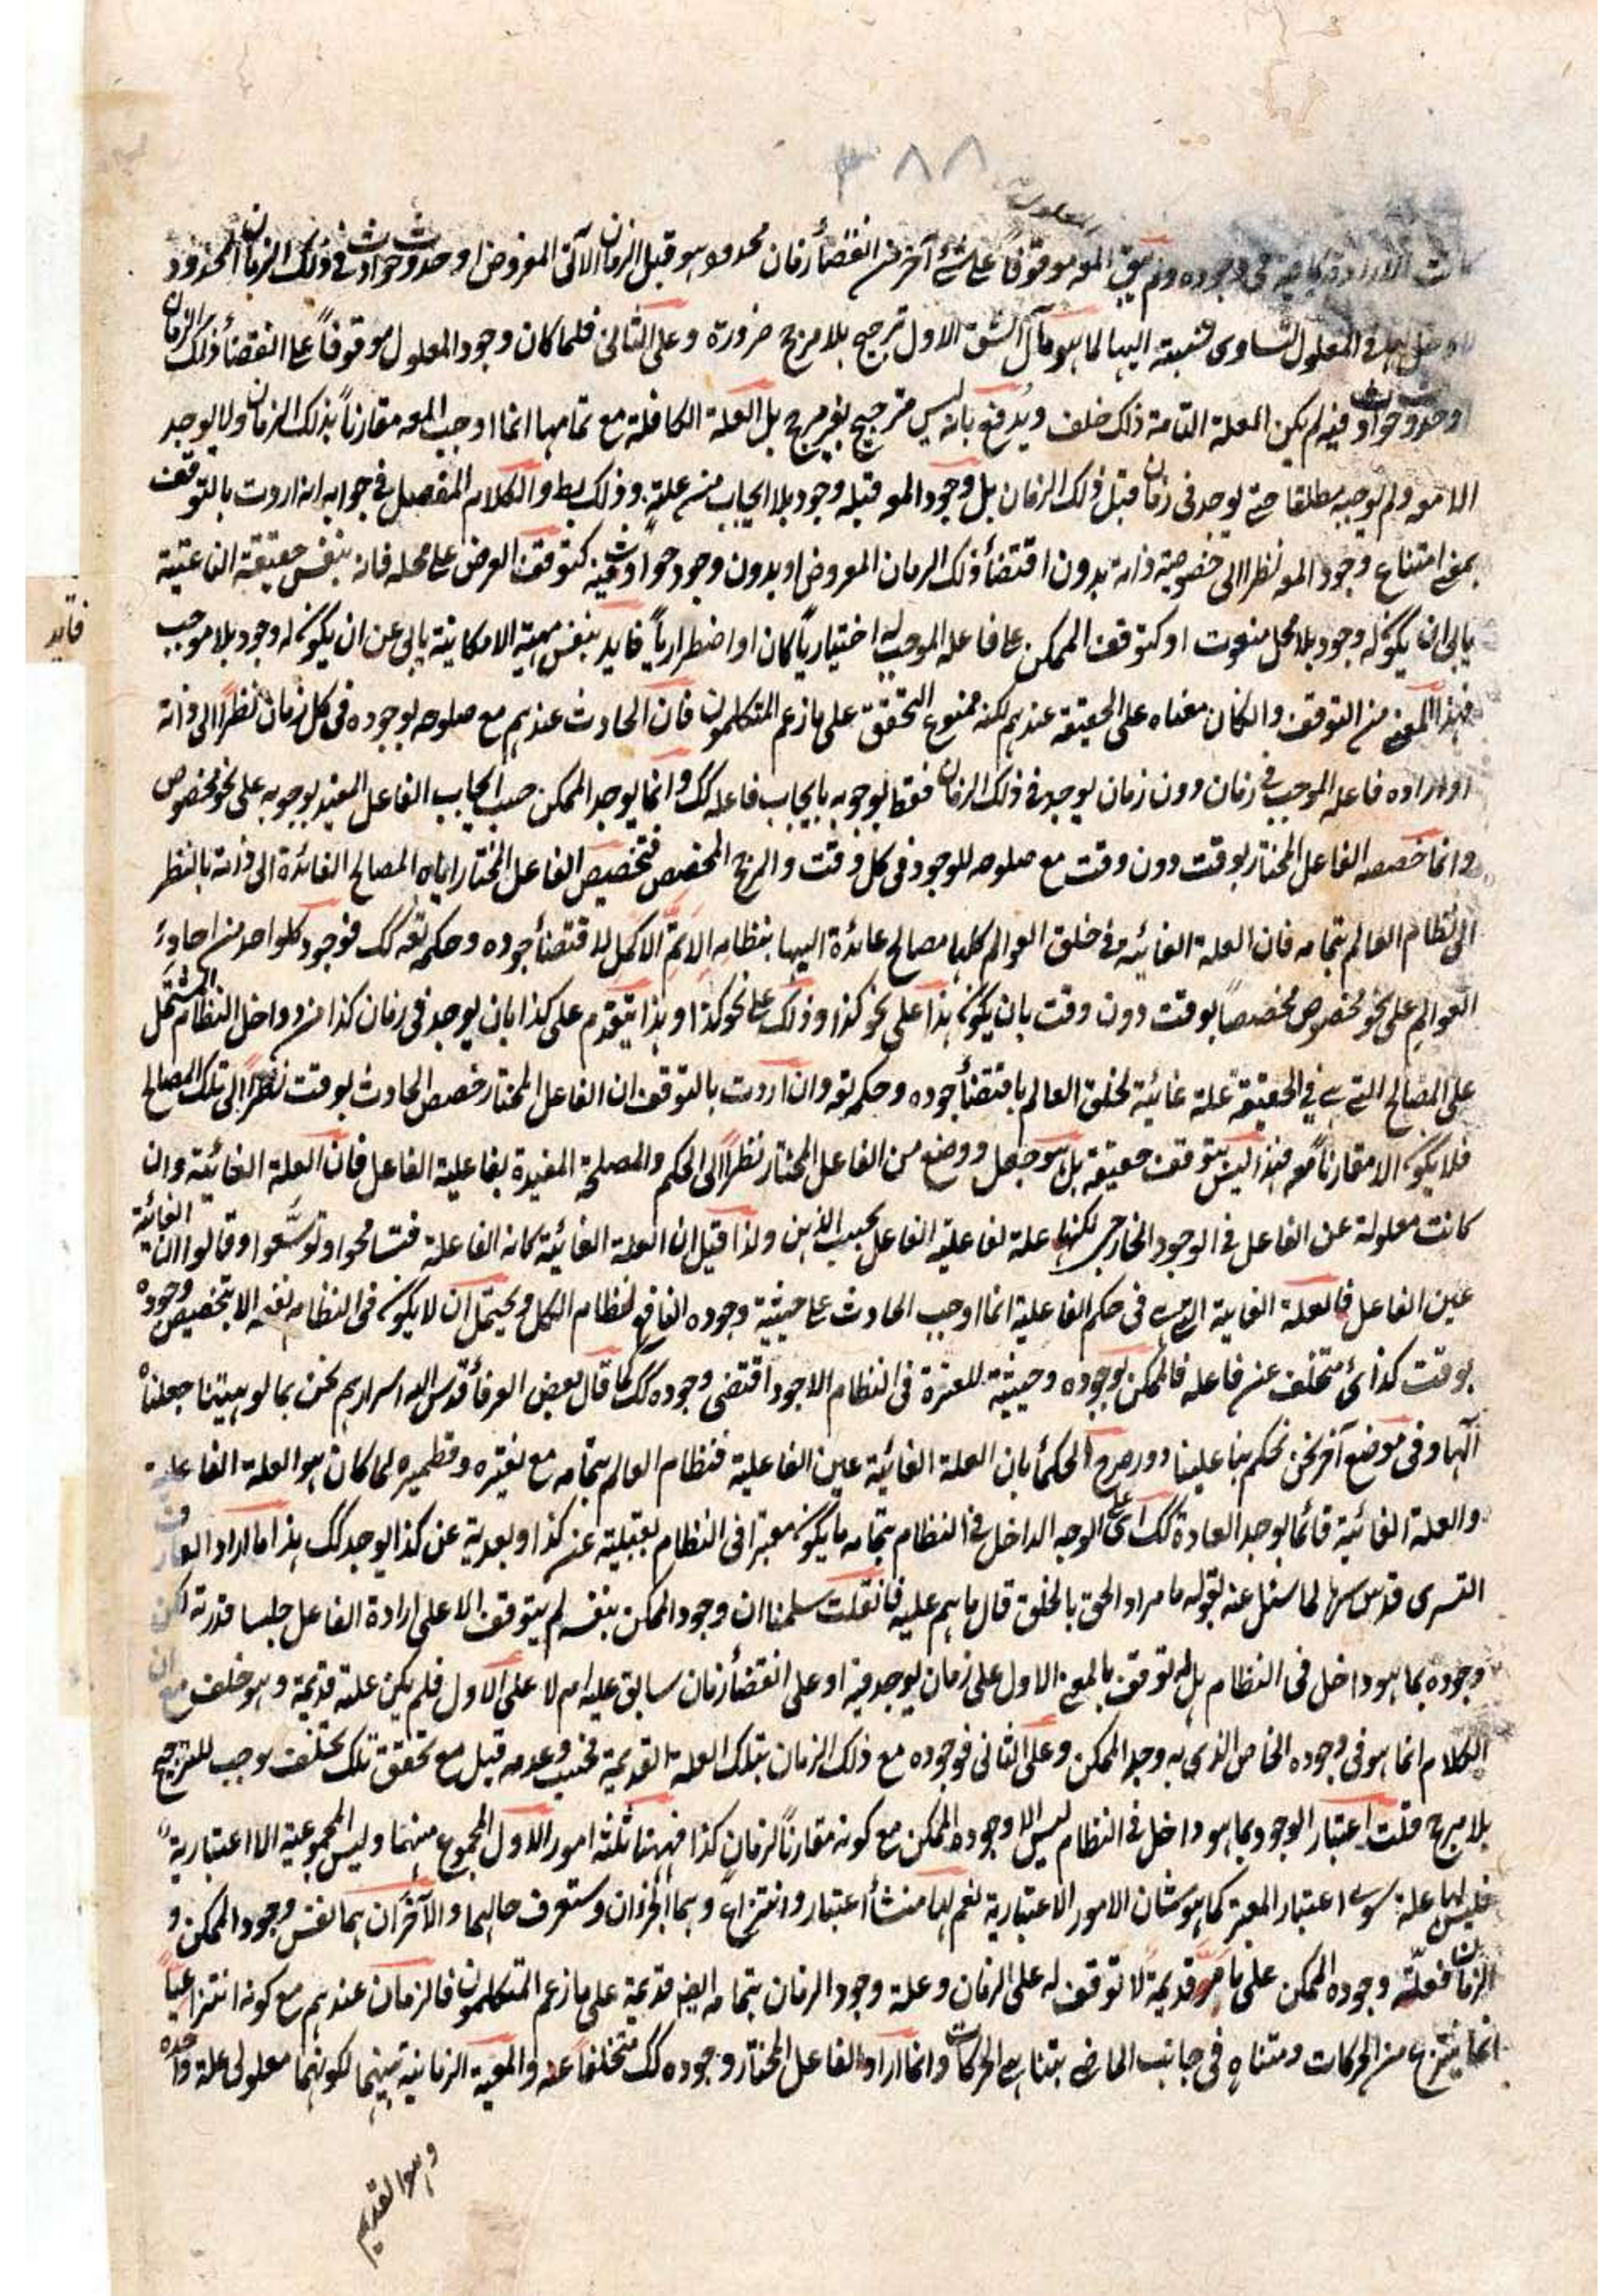 ٣٨٨
كانت الارادة كافية في وجوده ولم يبق المعه موقوفاً على شئ آخر من انقضأ زمان محدود هو قبل الزمان الآتى المفروض او حدوث حوادث في ذلك الزمان المحدود
في المعلول لتساوى نسبته اليها لما هو مآل الشق الاول ترجيح بلا مرجح ضرورة وعلى الثانى فلما كان وجود المعلول موقوفاً على انقضأ ذلك الزمان
او حدوث حوادث فيه لم يكن العلة التامة ذلك خلف ويدفع بانه ليس ترجيح بغير مرجح بل العلة الكافلة مع تمامها انما اوجب المعه مقارناً بذلك الزمان ولا يوجد
الامعه ولم يوجبه مطلقا حتى يوجد فى زمان قبل ذلك الزمان بل وجود المعه قبله وجود بلا ايجاب من علة وذلك بط والكلام المفصل في جوابه انه اردت بالتوقف
بمعنى امتناع وجود المعه نظرا الى خصوصية ذاته بدون اقتضأ ذلك الزمان المفروض او بدون وجود حوادث فيه كتوقف العرض على محله فانه بنفس حقيقته الناعتية
يابى ان يكون له وجود بلا محل منعوت او كتوقف الممكن على فاعله الموجب له اختيارياً كان او اضطرارياً فايد بنفس مهيته الامكانية يابى عن ان يكون له وجود بلا موجب
فهذا المعنى من التوقف وان كان معناه على الحقيقة عندهم لكنه ممنوع التحقق على ما زعم المتكلمون فان الحادث عندهم مع صلوحه لوجوده فى كل زمان نظراً الى ذاته
او اراده فاعله الموجب في زمان دون زمان يوجد في ذلك الزمان فقط لوجوبه بايجاب فاعله كك وانما يوجد الممكن حسب ايجاب الفاعل المفيد لوجوبه على نحو مخصوص
وانما خصصه الفاعل المختار بوقت دون وقت مع صلوحه للوجود فى كل وقت والمرجح المخصص لتخصيص الفاعل المختار اياه المصالح العائدة الى ذاته بالنظر
الى نظام العالم بتمامه فان العلة الغائية في خلق العوالم كلها مصالح عائدة اليها بنظامه الاتمّ الاكمل لاقتضأ جوده وحكمته تعه كك فوجود كل واحد من احاد
العوالم على نحو مخصوص مخصصاً بوقت دون وقت بان يكون هذا على نحو كذا وذلك على نحو كذا او هذا يتقدم على كذا بان يوجد فى زمان كذا من دواخل النظام المشتمل
على المصالح التى هى في الحقيقة علة غائية لخلق العالم باقتضأ جوده وحكمته وان اردت بالتوقف ان الفاعل المختار خصص الحادث بوقت نظراً الى تلك المصالح
فلا يكون الا مقارناً معه فهذا ليس بتوقف حقيقة بل هو جعل ووضع من الفاعل المختار نظراً الى الحكم والمصلحة المفيدة بفاعلية الفاعل فان العلة الغائية وان
كانت معلولة عن الفاعل في الوجود الخارجى لكنها علة لفاعلية الفاعل بحسب الذهن ولذا قيل ان العلة الغائية كانه الفاعلة فتسامحوا وتوسّعوا وقالوا ان الغائية
عين الفاعل فالعلة الغائية التى هى فى حكم الفاعلية انما اوجب الحادث على حيثية وجوده النافع لنظام الكل ويحتمل ان لا يكون فى النظام نفعه الا بتخصيص وجوده
بوقت كذائى متخلف عن فاعله فالممكن بوجوده وحيثية المعتبرة فى النظام الاجود اقتضى وجوده كك كما قال بعض العرفأ قدس الله اسرارهم نحن بمالوهيتنا جعلناه
آلها وفى موضع آخر نحن نحكم بنا علينا وقد صرح الحكمأ بان العلة الغائية عين الفاعلية فنظام العالم بتمامه مع نقيره وقطميره لما كان هو العلة الفاعلية
والعلة الغائية فانما يوجد العادة كك اى على الوجه الداخل في النظام بتمامه ما يكون معتبرا فى النظام بقبلية عن كذا وبعدية عن كذا يوجد كك هذا ما اراد العارف
التسرى قدس سرها لما سئل عنه بقوله ما مراد الحق بالخلق قال ما هم عليه فان قلت سلمنا ان وجود الممكن بنفسه لم يتوقف الا على ارادة الفاعل جلسا قدرته لكن
وجوده بما هو داخل فى النظام هل له توقف بالمعنى الاول على زمان يوجد فيه او على انقضأ زمان سابق عليه ام لا على الاول فلم يكن علته قديمة وهو خلف مع ان
الكلام انما هو فى وجوده الخاص الذى به وجد الممكن وعلى الثانى فوجوده مع ذلك الزمان بتلك العلة القديمة فحسب وعدمه قبل مع تحقق تلك تخلف موجب للترجيح
بلا مرجح قلت اعتبار الوجود بما هو داخل في النظام ليس الا وجود الممكن مع كونه مقارناً لزمان كذا فههنا ثلثة امور الاول المجموع منهما وليس المجموعية الا اعتبارية
فليس لها علة سوى اعتبار المعتبر كما هو شان الامور الاعتبارية نعم لها منشأ اعتبار وانتزاع وهما الجزءان وستعرف حالهما والآخران هما نفس وجود الممكن و
الزمان فعلّة وجوده الممكن على ما مرّ قديمة لا توقف له على الزمان وعلة وجود الزمان بتمامه ايضا قديمة على ما زعم المتكلمون فالزمان عندهم مع كونه انتزاعياً
انما ينتزع من الحركات ومتناه فى جانب الماضى بتناهى الحركات وانما اراد الفاعل المختار وجوده كك متخلفاً عنه والمعية الزمانية بينهما لكونهما معلولى علة واحدة
وهو القديم
فايد